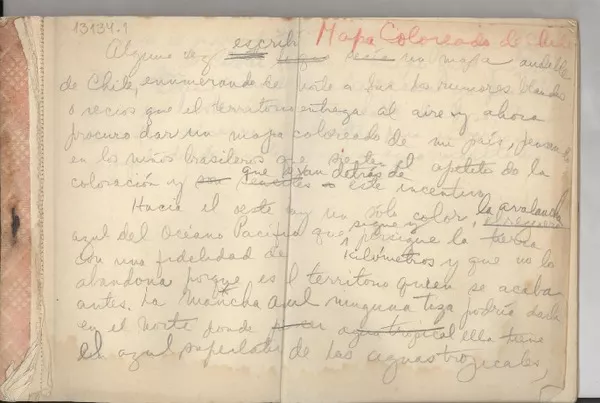 13134.1
Mapa Coloreado de Chile
Alguna vez escribí un mapa audible
de Chile, enumerando de norte a sur los rumores blandos
o recios que el territorio entrega al aire y ahora
procuro dar un mapa coloreado de mi país, pensando
en los niños brasileros que sienten el apetito de la
coloración y que van detrás de este incentivo
Hacia el oeste hay un solo color, la avalancha
azul del Océano Pacífico que sigue y persigue la tierra
con una fidelidad de kilómetros y que no lo
abandona porque es el territorio quien se acaba
antes. La mancha azul ninguna tiza podría darla
en el norte donde ella tiene
el azul de las aguas tropicales,